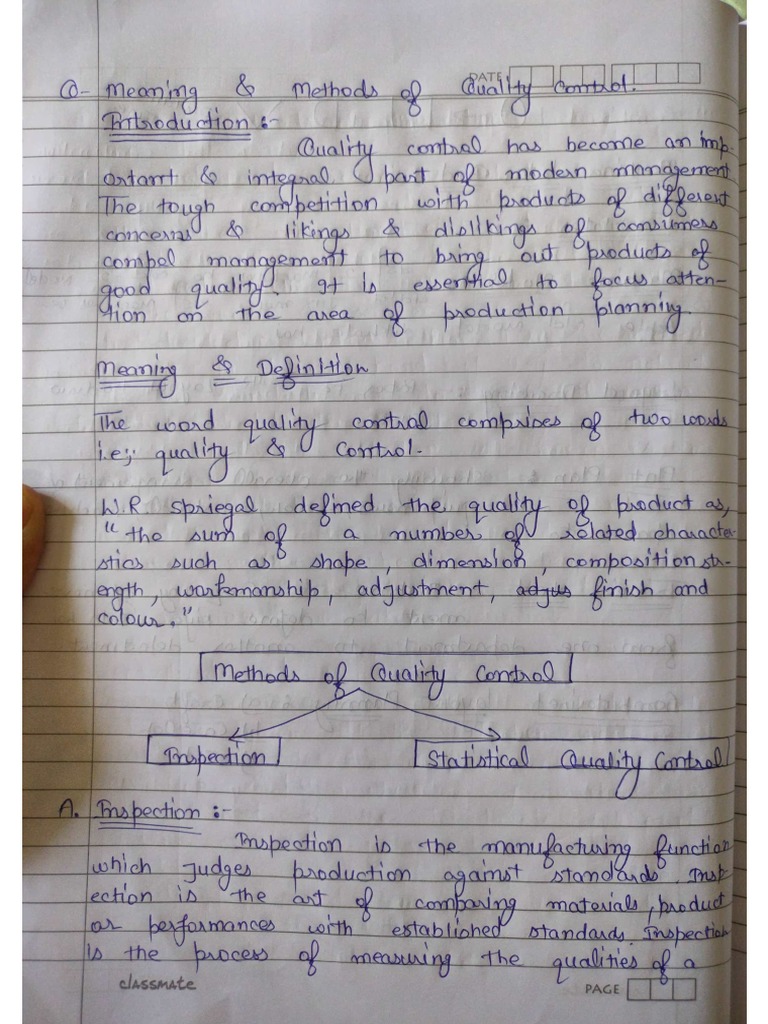 DATE
Q- Meaning & Methods of Quality Control.
Introduction :-
Quality control has become an imp-
ortant & integral part of modern management
The tough competition with products of different
concerns & likings & dislikings of consumers
compel management to bring out products of
good quality. It is essential to focus atten-
-tion on the area of production planning.
Meaning & Definition
The word quality control comprises of two words
i.e; quality & Control.
W.R Spriegal defined the quality of product as,
"the sum of a number of related characte-
stics such as shape, dimension, composition str-
ength, workmanship, adjustment, adjus finish and
colour."
Methods of Quality Control
Inspection
Statistical Quality Control
A. Inspection :-
Inspection is the manufacturing function
which Judges production against standards. Insp
ection is the art of comparing materials, product
or performances with established standards. Inspection
is the process of measuring the qualities of a
classmate
PAGE